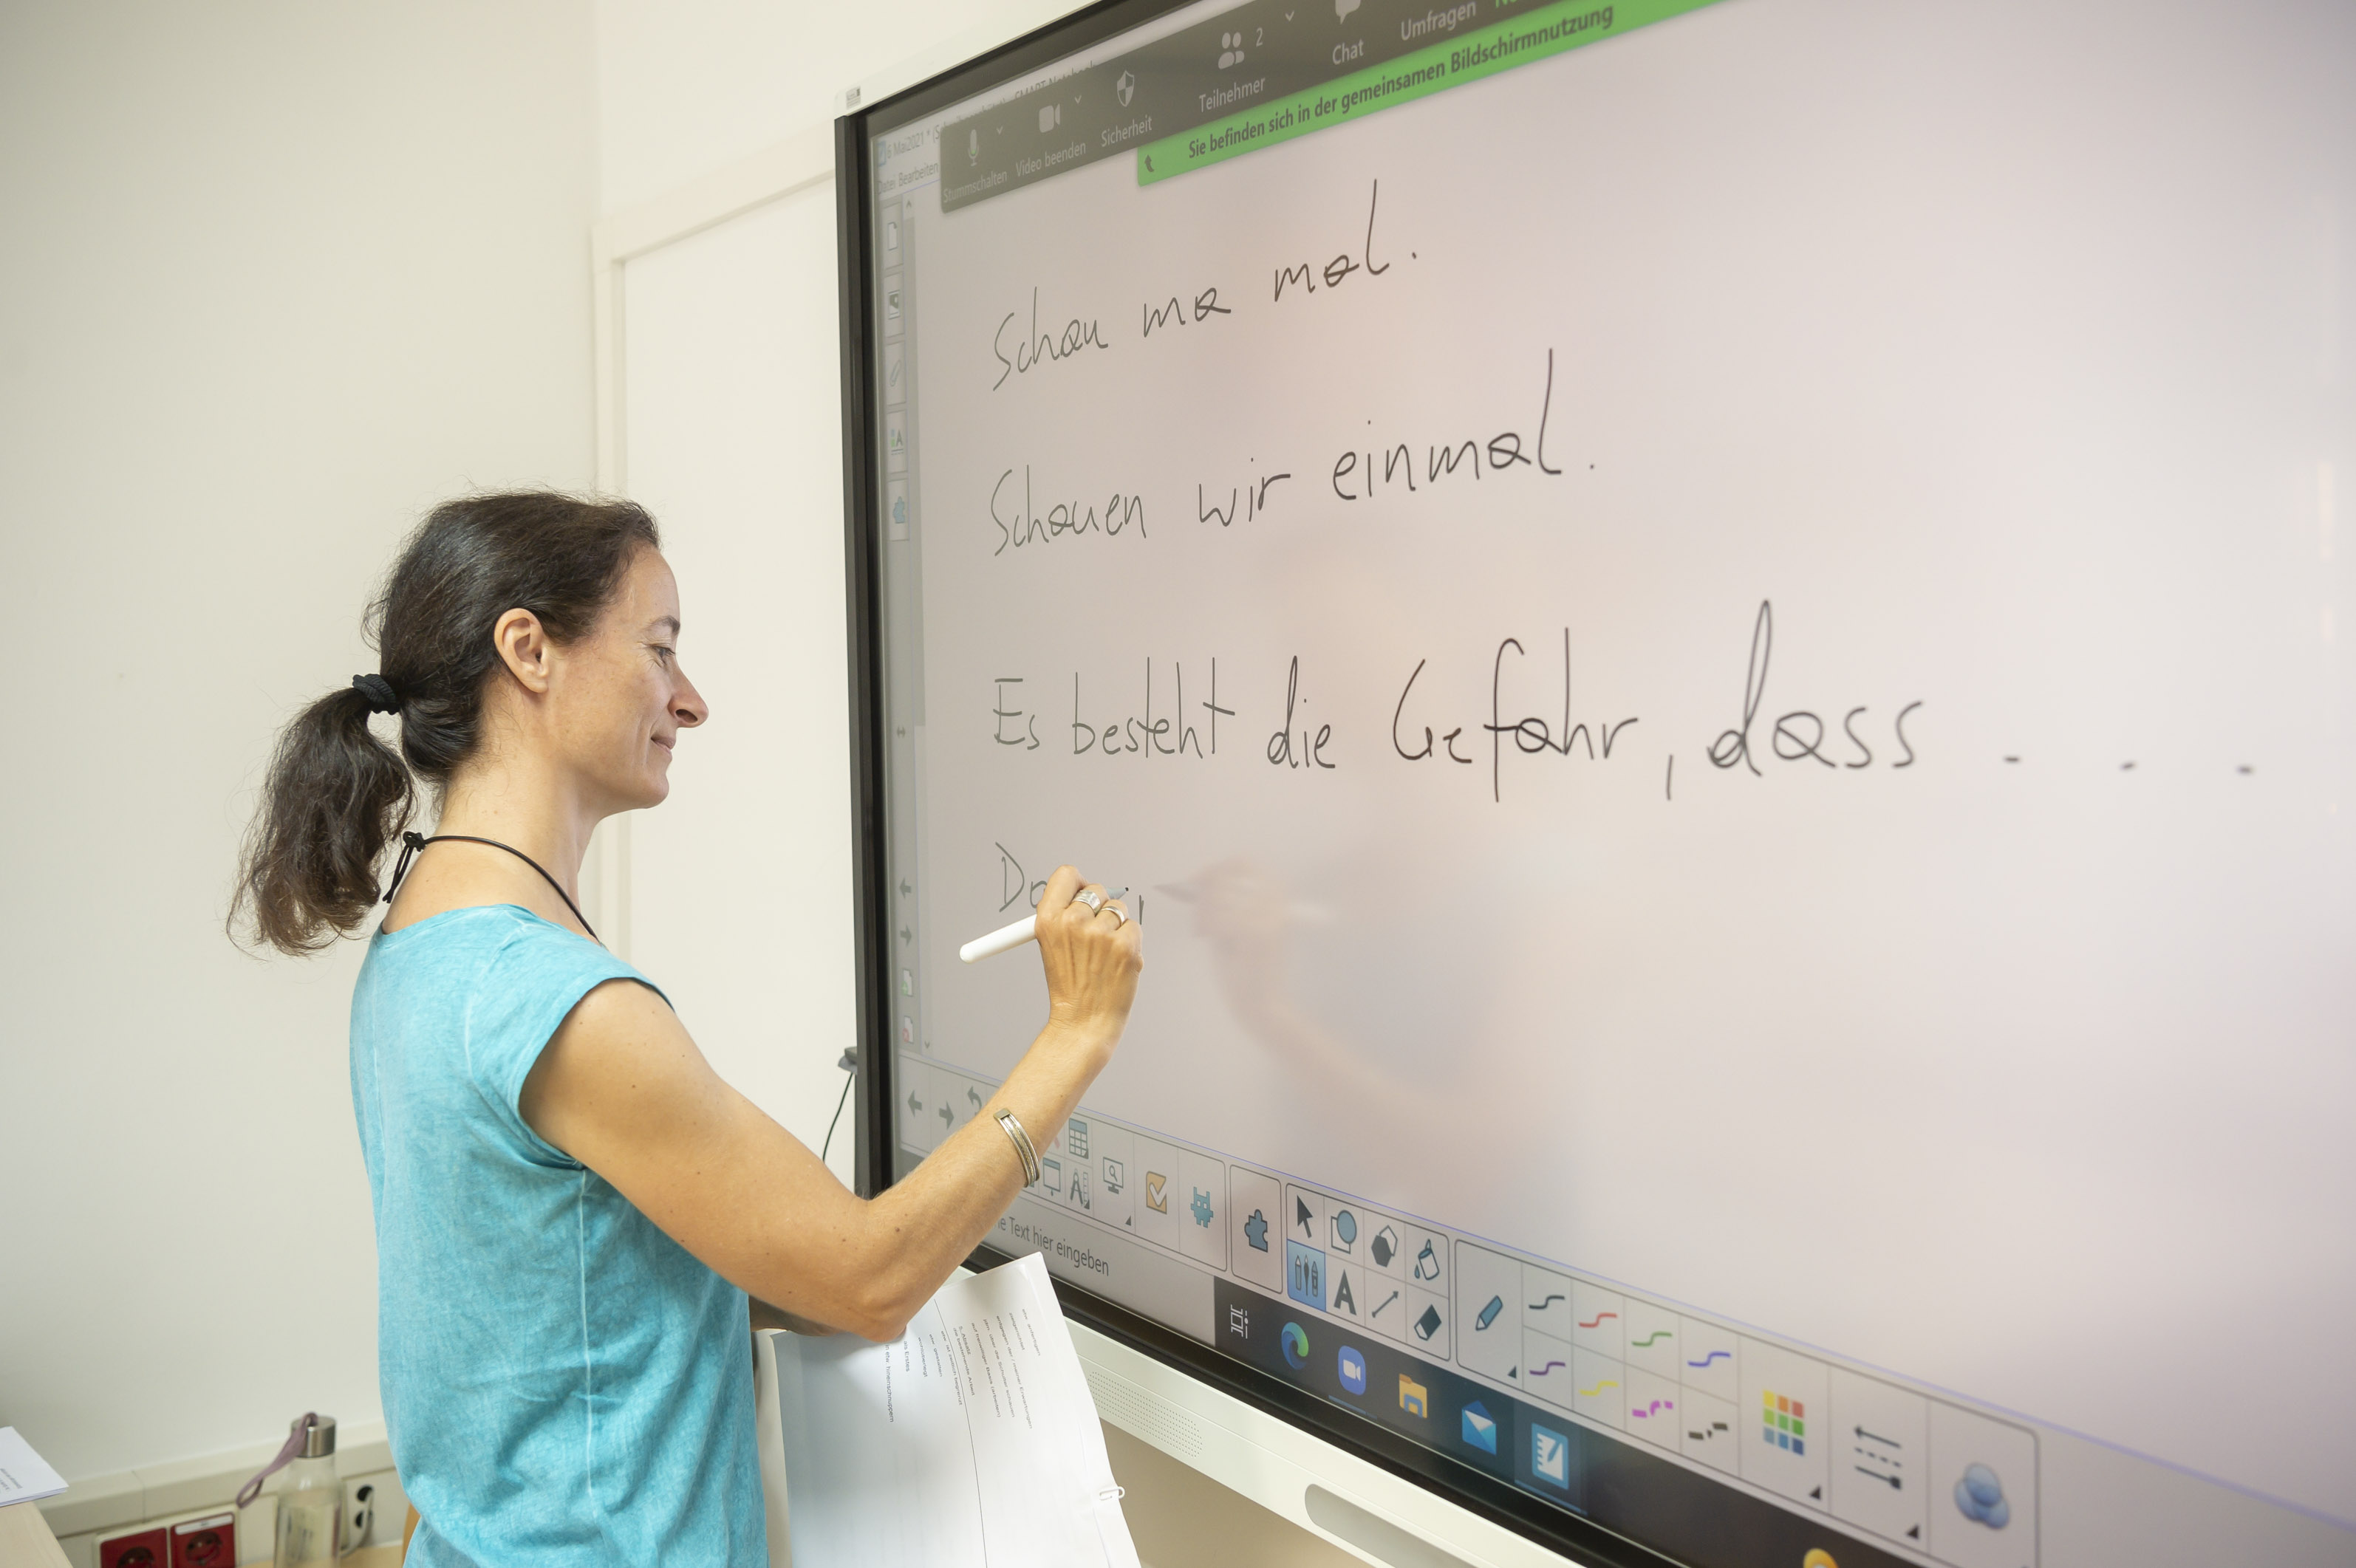 2
Chat
Umfragen
Teilnehmer
Sicherheit
Video beenden
Stummschalten
Sie befinden sich in der gemeinsamen Bildschirmnutzung
6 Mai2021 *
Datei Bearbeiten
Schau ma mal.
Schauen wir einmal.
Es besteht die Gefahr, dass . . .
Text hier eingeben